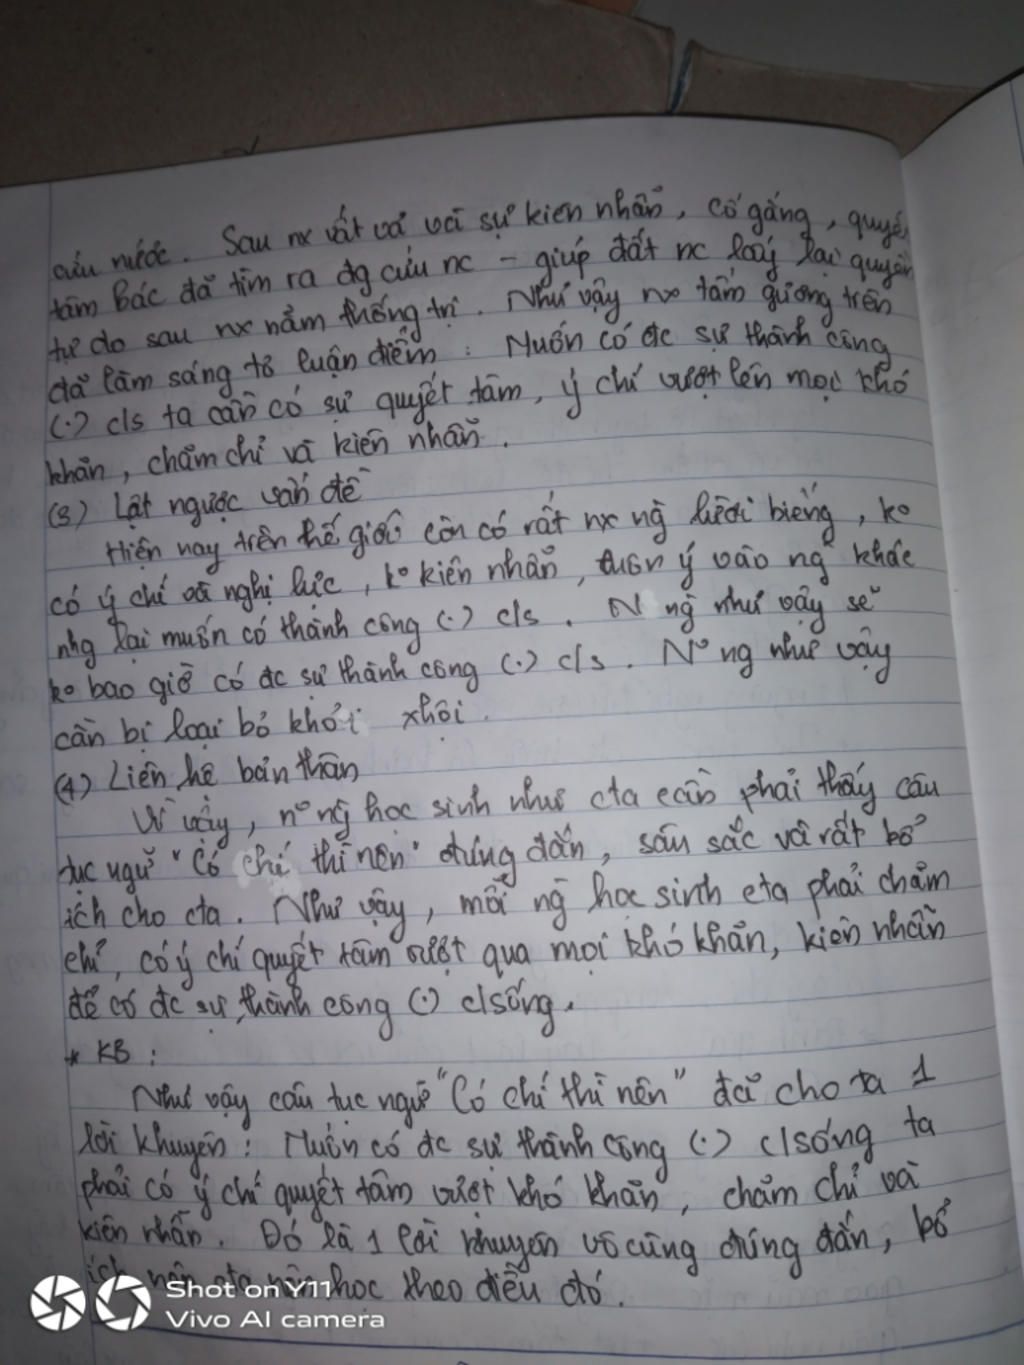 cứu nước. Sau nx vất vả với sự kiên nhẫn, cố gắng, quyết
tâm Bác đã tìm ra đg cứu nc - giúp đất nc lấy lại quyền
tự do sau nx năm thống trị. Như vậy nx tấm gương trên
đã làm sáng tỏ luận điểm: Muốn có đc sự thành công
(.) c/s ta cần có sự quyết tâm, ý chí vượt lên mọi khó
khăn, chăm chỉ và kiên nhẫn.
(3) Lật ngược vấn đề
Hiện nay trên thế giới còn có rất nx ng` lười biếng, ko
có ý chí và nghị lực, ko kiên nhẫn, ý vào ng` khác
nhg lại muốn có thành công (.) c/s. N ng` như vậy sẽ
ko bao giờ có đc sự thành công (.) c/s. No ng như vậy
cần bị loại bỏ khỏi xhội.
(4) Liên hệ bản thân
Vì vậy, no ng` học sinh như cta cần phải thấy câu
tục ngữ "Có chí thì nên" đúng đắn, sâu sắc và rất bổ
ích cho cta. Như vậy, mỗi ng` học sinh cta phải chăm
chỉ, có ý chí quyết tâm vượt qua mọi khó khăn, kiên nhẫn
để có đc sự thành công (.) c/sống.
* KB:
Như vậy câu tục ngữ "Có chí thì nên" đã cho ta 1
lời khuyên: Muốn có đc sự thành công (.) c/sống ta
phải có ý chí quyết tâm vượt khó khăn, chăm chỉ và
kiên nhẫn. Đó là 1 lời khuyên vô cùng đúng đắn, bổ
ích nên cta nên học theo điều đó.
Shot on Y11
Vivo AI camera